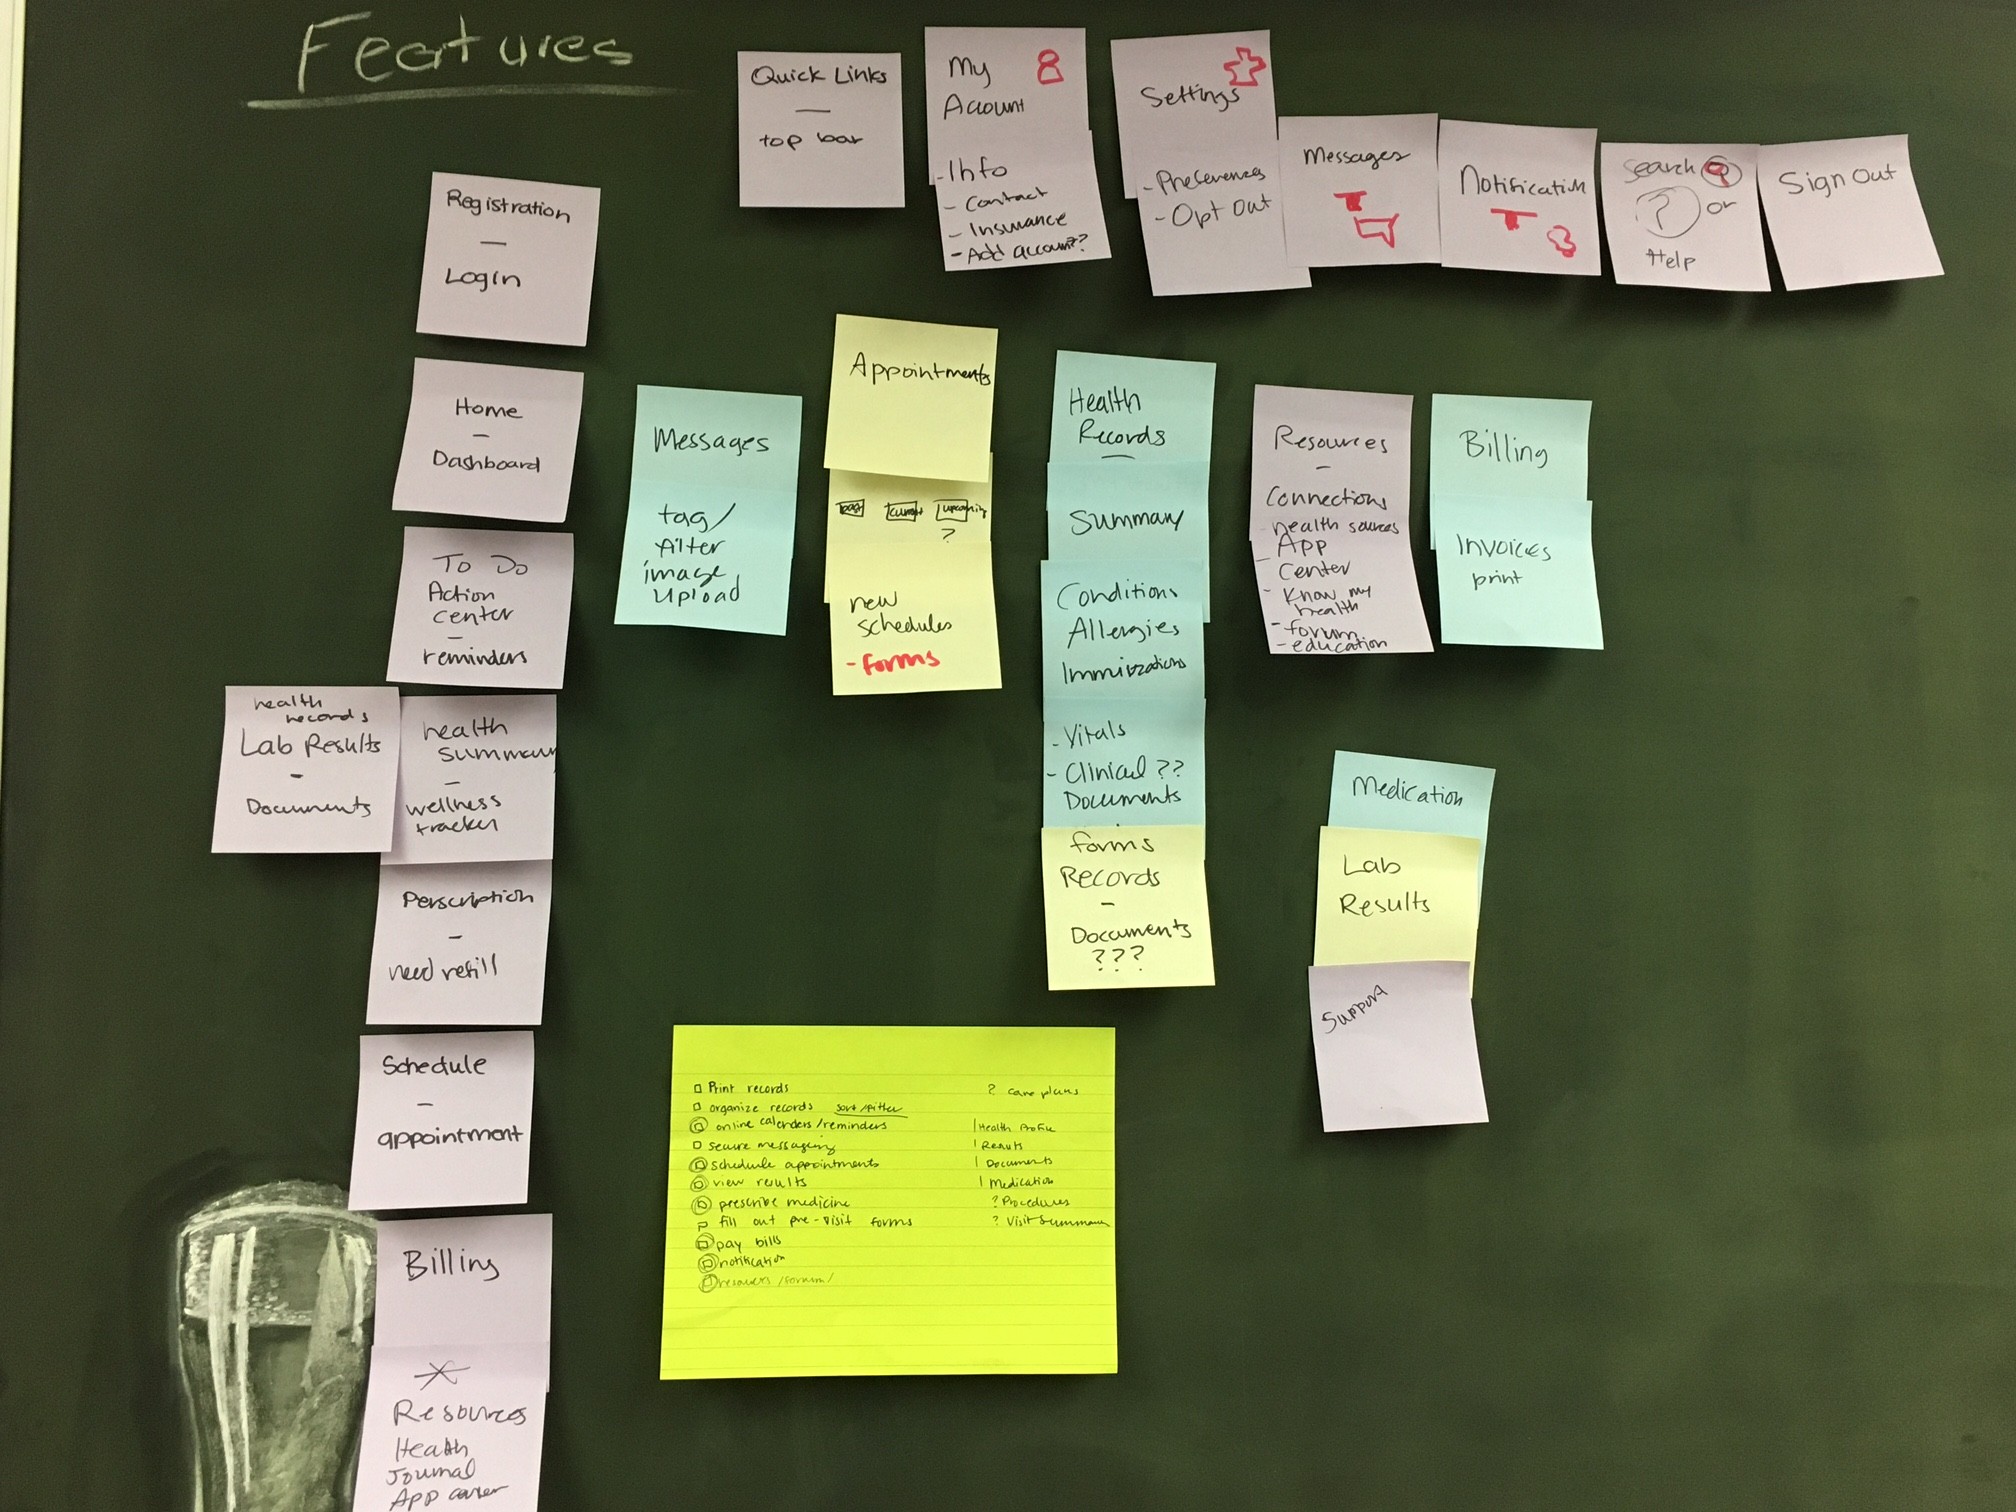 Features
Quick Links
—
top bar
My
Account
- Info
- Contact
- Insurance
- Add account??
Settings
- Preferences
- Opt Out
Messages
Notification
Search
? or
Help
Sign Out
Registration
—
Login
Home
—
Dashboard
To Do
Action
center
—
reminders
health
records
Lab Results
-
Documents
health
summary
—
wellness
tracker
Perscription
-
need refill
Schedule
—
appointment
Billing
Resources
Health
Journal
App center
Messages
tag/
filter
image
upload
Appointments
past current upcoming
?
new
schedules
- forms
Health
Records
—
Summary
Conditions
Allergies
Immizations
- Vitals
- Clinical ??
Documents
forms
Records
-
Documents
???
Resources
-
Connections
- health sources
- App
Center
- Know my
health
- forum
- education
Billing
Invoices
print
Medication
Lab
Results
Support
Print records
organize records sort/filter
online calenders/reminders
secure messaging
schedule appointments
view results
prescribe medicine
fill out pre-visit forms
pay bills
notification
/forum/
? care plans
| Health Profile
| Results
| Documents
| Medication
? Procedures
? Visit Summary